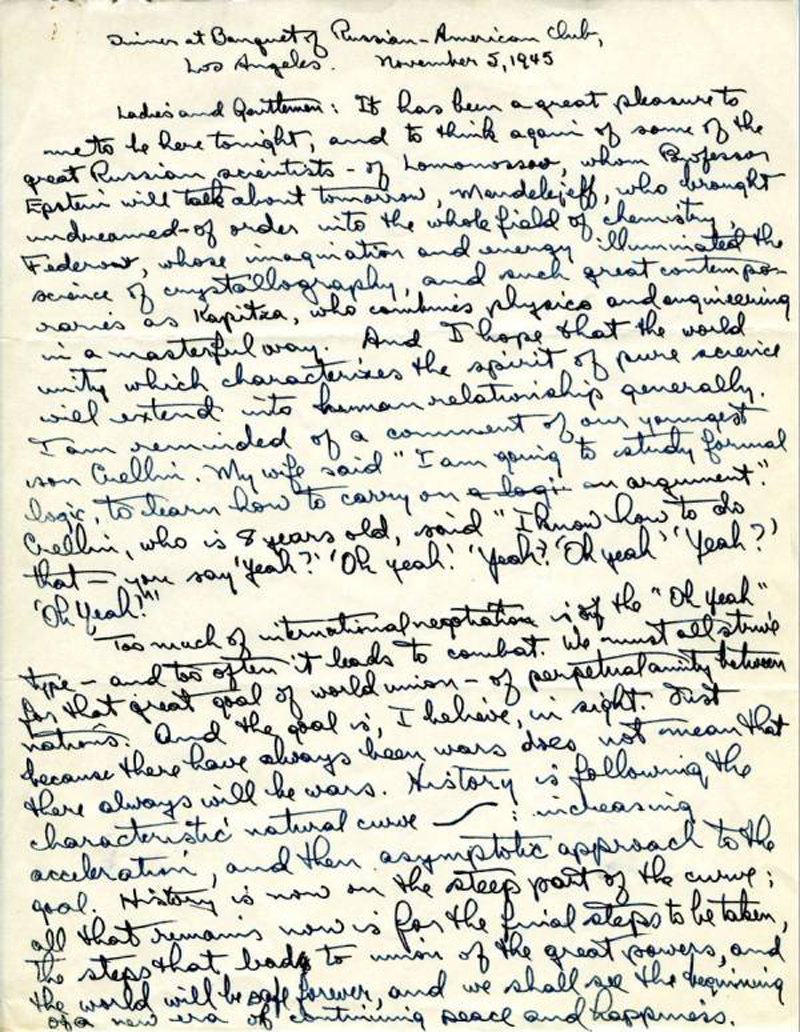 Dinner at Banquet of Russian-American Club,
Los Angeles. November 5, 1945
Ladies and Gentlemen: It has been a great pleasure to
me to be here tonight, and to think again of some of the
great Russian scientists - of Lomonossov, whom Professor
Epstein will talk about tomorrow, Mendelejeff, who brought
undreamed-of order into the whole field of chemistry,
Federow, whose imagination and energy illuminated the
science of crystallography, and such great contempo-
raries as Kapitza, who combines physics and engineering
in a masterful way. And I hope that the world
unity which characterizes the spirit of pure science
will extend into human relationship generally.
I am reminded of a comment of our youngest
son Crellin. My wife said "I am going to study formal
logic, to learn how to carry on a logi an argument."
Crellin, who is 8 years old, said "I know how to do
that — you say 'Yeah?' 'Oh yeah!' 'Yeah?' 'Oh yeah' 'Yeah?'
'Oh Yeah!'"
Too much of international negotiation is of the "Oh Yeah"
type - and too often it leads to combat. We must all strive
for that great goal of world union - of perpetual amity between
nations. And the goal is, I believe, in sight. Just
because there have always been wars does not mean that
there always will be wars. History is following the
characteristic natural curve : increasing
acceleration, and then asymptotic approach to the
goal. History is now on the steep part of the curve;
all that remains now is for the final steps to be taken,
the steps that lead to union of the great powers, and
the world will be safe forever, and we shall see the beginning
of a new era of continuing peace and happiness.